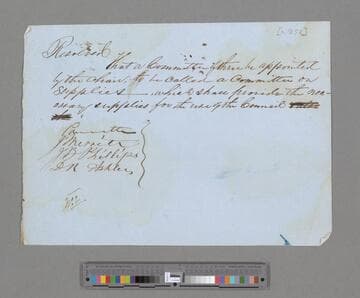 Resolved
That a Committee of three be appointed
by the Chair to be called a Committee on
Supplies which shall provide the nec-
essary supplies for the use of the Council
Committee
J Merritt
Phillips